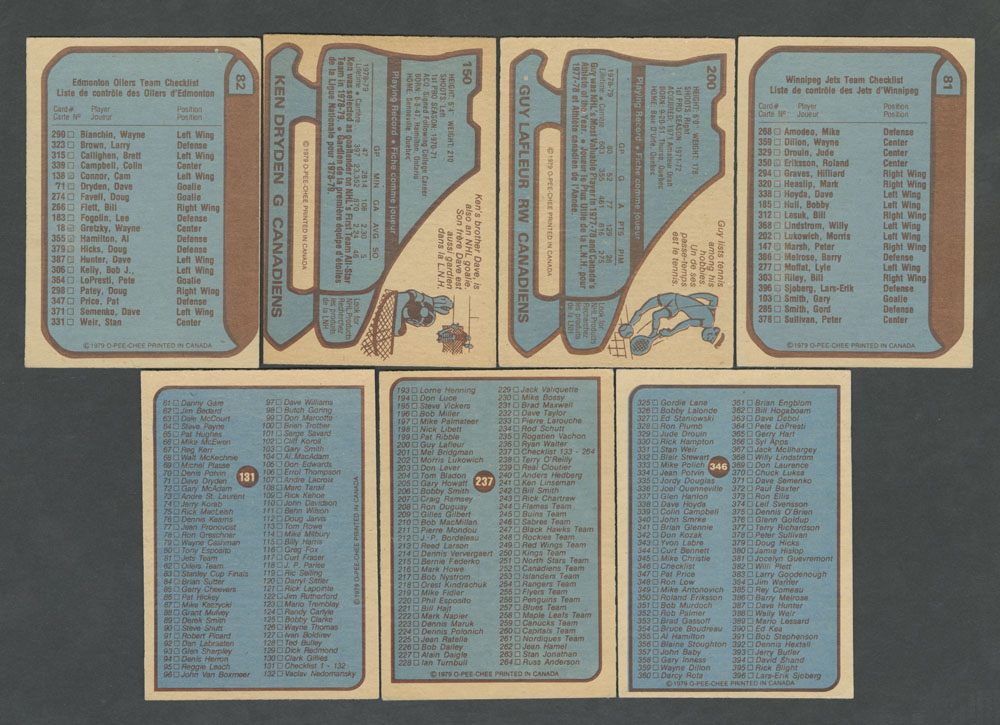 82
Edmonton Oilers Team Checklist
Liste de contrôle des Oilers d'Edmonton
Card # Player Position
Carte Nº Joueur Position
290 Bianchin, Wayne Left Wing
323 Brown, Larry Defense
315 Callighen, Brett Left Wing
339 Campbell, Colin Center
138 Connor, Cam Left Wing
71 Dryden, Dave Goalie
274 Favell, Doug Goalie
266 Flett, Bill Right Wing
183 Fogolin, Lee Defense
18 Gretzky, Wayne Center
355 Hamilton, Al Defense
379 Hicks, Doug Defense
387 Hunter, Dave Left Wing
306 Kelly, Bob J., Left Wing
364 LoPresti, Pete Goalie
298 Patey, Doug Right Wing
347 Price, Pat Defense
371 Semenko, Dave Left Wing
331 Weir, Stan Center
© 1979 O-PEE-CHEE PRINTED IN CANADA
150
KEN DRYDEN G CANADIENS
HEIGHT: 6'4 WEIGHT: 210
SHOOTS: Left
1ST PRO SEASON: 1970-71
ACQ: Signed Following College Career
BORN: 8-8-47, Hamilton, Ontario
Playing Record • Fiche comme joueur
GP MIN GA AVG SO
1978-79 47 2814 108 2.30 5
Lifetime • Carrière 397 23,352 870 2.24 46
Ken was selected as goaltender on NHL's First Team All-Star
Team in 1978-79. • Gardien de la première équipe d'étoiles
de la Ligue Nationale pour 1978-79.
© 1979 O-PEE-CHEE PRINTED IN CANADA
Ken's brother, Dave, is
also an NHL goalie.
Son frère Dave est
aussi gardien
dans la L.N.H.
Look for
NHL Products
Recherchez
les produits
de la LNH
200
GUY LAFLEUR RW CANADIENS
HEIGHT: 6'0 WEIGHT: 178
SHOOTS: Right
1ST PRO SEASON: 1971-72
ACQUIRED: 1971 Amateur Draft
BORN: 9-20-51, Thurso, Quebec
Playing Record • Fiche comme joueur
GP G A PTS PIM
1978-79 80 52 77 129 28
Guy was NHL's Most Valuable Player in 1977-78 and Canada's
Athlete of the Year. • Jouer le Plus Utile de la L.N.H. pour
1977-78 et Athlète canadien de l'Année.
© 1979 O-PEE-CHEE PRINTED IN CANADA
Guy lists tennis
among his
hobbies.
Un de ses
passe-temps
est le tennis.
Look for
NHL Products
Recherchez
les produits
de la LNH
81
Winnipeg Jets Team Checklist
Liste de contrôle des Jets d'Winnipeg
Card # Player Position
Carte Nº Joueur Position
268 Amodeo, Mike Defense
359 Dillon, Wayne Center
329 Drouin, Jude Center
350 Eriksson, Roland Center
294 Graves, Hilliard Right Wing
320 Heaslip, Mark Right Wing
338 Hoyda, Dave Left Wing
185 Hull, Bobby Left Wing
312 Lesuk, Bill Right Wing
368 Lindstrom, Willy Left Wing
202 Lukowich, Morris Left Wing
147 Marsh, Peter Right Wing
386 Melrose, Barry Defense
277 Moffat, Lyle Left Wing
303 Riley, Bill Right Wing
396 Sjoberg, Lars-Erik Defense
103 Smith, Gary Goalie
285 Smith, Gord Defense
378 Sullivan, Peter Center
© 1979 O-PEE-CHEE PRINTED IN CANADA
131
61 Danny Gare
62 Jim Bedard
63 Dale McCourt
64 Steve Payne
65 Pat Hughes
66 Mike McEwen
67 Reg Kerr
68 Walt McKechnie
69 Michel Plasse
70 Denis Potvin
71 Dave Dryden
72 Gary McAdam
73 Andre St. Laurent
74 Jerry Korab
75 Rick MacLeish
76 Dennis Kearns
77 Jean Pronovost
78 Ron Greschner
79 Wayne Cashman
80 Tony Esposito
81 Jets Team
82 Oilers Team
83 Stanley Cup Finals
84 Brian Sutter
85 Gerry Cheevers
86 Pat Hickey
87 Mike Kaszycki
88 Grant Mulvey
89 Derek Smith
90 Steve Shutt
91 Robert Picard
92 Dan Labraaten
93 Glen Sharpley
94 Denis Herron
95 Reggie Leach
96 John Van Boxmeer
97 Dave Williams
98 Butch Goring
99 Don Marcotte
100 Brian Trottier
101 Serge Savard
102 Cliff Koroll
103 Gary Smith
104 Al MacAdam
105 Don Edwards
106 Errol Thompson
107 Andre Lacroix
108 Marc Tardif
109 Rick Kehoe
110 John Davidson
111 Behn Wilson
112 Doug Jarvis
113 Tom Rowe
114 Mike Milbury
115 Billy Harris
116 Greg Fox
117 Curt Fraser
118 J. P. Parise
119 Ric Seiling
120 Darryl Sittler
121 Rick Lapointe
122 Jim Rutherford
123 Mario Tremblay
124 Randy Carlyle
125 Bobby Clarke
126 Wayne Thomas
127 Ivan Boldirev
128 Ted Bulley
129 Dick Redmond
130 Clark Gillies
131 Checklist 1 - 132
132 Vaclav Nedomansky
© 1979 O-PEE-CHEE PRINTED IN CANADA
237
193 Lorne Henning
194 Don Luce
195 Steve Vickers
196 Bob Miller
197 Mike Palmateer
198 Nick Libett
199 Pat Ribble
200 Guy Lafleur
201 Mel Bridgman
202 Morris Lukowich
203 Don Lever
204 Tom Bladon
205 Gary Howatt
206 Bobby Smith
207 Craig Ramsay
208 Ron Duguay
209 Gilles Gilbert
210 Bob MacMillan
211 Pierre Mondou
212 J.-P. Bordeleau
213 Reed Larson
214 Dennis Ververgaert
215 Bernie Federko
216 Mark Howe
217 Bob Nystrom
218 Orest Kindrachuk
219 Mike Fidler
220 Phil Esposito
221 Bill Hajt
222 Mark Napier
223 Dennis Maruk
224 Dennis Polonich
225 Jean Ratelle
226 Bob Dailey
227 Alain Daigle
228 Ian Turnbull
229 Jack Valiquette
230 Mike Bossy
231 Brad Maxwell
232 Dave Taylor
233 Pierre Larouche
234 Rod Schutt
235 Rogatien Vachon
236 Ryan Walter
237 Checklist 133 - 264
238 Terry O'Reilly
239 Real Cloutier
240 Anders Hedberg
241 Ken Linseman
242 Bill Smith
243 Rick Chartraw
244 Flames Team
245 Bruins Team
246 Sabres Team
247 Black Hawks Team
248 Rockies Team
249 Red Wings Team
250 Kings Team
251 North Stars Team
252 Canadiens Team
253 Islanders Team
254 Rangers Team
255 Flyers Team
256 Penguins Team
257 Blues Team
258 Maple Leafs Team
259 Canucks Team
260 Capitals Team
261 Nordiques Team
262 Jean Hamel
263 Stan Jonathan
264 Russ Anderson
© 1979 O-PEE-CHEE PRINTED IN CANADA
346
325 Gordie Lane
326 Bobby Lalonde
327 Ed Staniowski
328 Ron Plumb
329 Jude Drouin
330 Rick Hampton
331 Stan Weir
332 Blair Stewart
333 Mike Polich
334 Jean Potvin
335 Jordy Douglas
336 Joel Quenneville
337 Glen Hanlon
338 Dave Hoyda
339 Colin Campbell
340 John Smrke
341 Brian Glennie
342 Don Kozak
343 Yvon Labre
344 Curt Bennett
345 Mike Christie
346 Checklist
347 Pat Price
348 Ron Low
349 Mike Antonovich
350 Roland Eriksson
351 Bob Murdoch
352 Rob Palmer
353 Brad Gassoff
354 Bruce Boudreau
355 Al Hamilton
356 Blaine Stoughton
357 John Baby
358 Gary Inness
359 Wayne Dillon
360 Darcy Rota
361 Brian Engblom
362 Bill Hogaboam
363 Dave Debol
364 Pete LoPresti
365 Gerry Hart
366 Syl Apps
367 Jack McIlhargey
368 Willy Lindstrom
369 Don Laurence
370 Chuck Luksa
371 Dave Semenko
372 Paul Baxter
373 Ron Ellis
374 Leif Svensson
375 Dennis O'Brien
376 Glenn Goldup
377 Terry Richardson
378 Peter Sullivan
379 Doug Hicks
380 Jamie Hislop
381 Jocelyn Guevremont
382 Willi Plett
383 Larry Goodenough
384 Jim Warner
385 Rey Comeau
386 Barry Melrose
387 Dave Hunter
388 Wally Weir
389 Mario Lessard
390 Ed Kea
391 Bob Stephenson
392 Dennis Hextall
393 Jerry Butler
394 David Shand
395 Rick Blight
396 Lars-Erik Sjoberg
© 1979 O-PEE-CHEE PRINTED IN CANADA